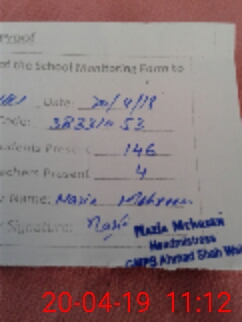 Proof
of the School Monitoring Form to
Date: 20/4/19
Code: 38331053
Students Present 146
Teachers Present 4
Name: Nazia Mehreen
Signature: Nazia
Headmistress
GMPS Ahmad Shah
20-04-19 11:12